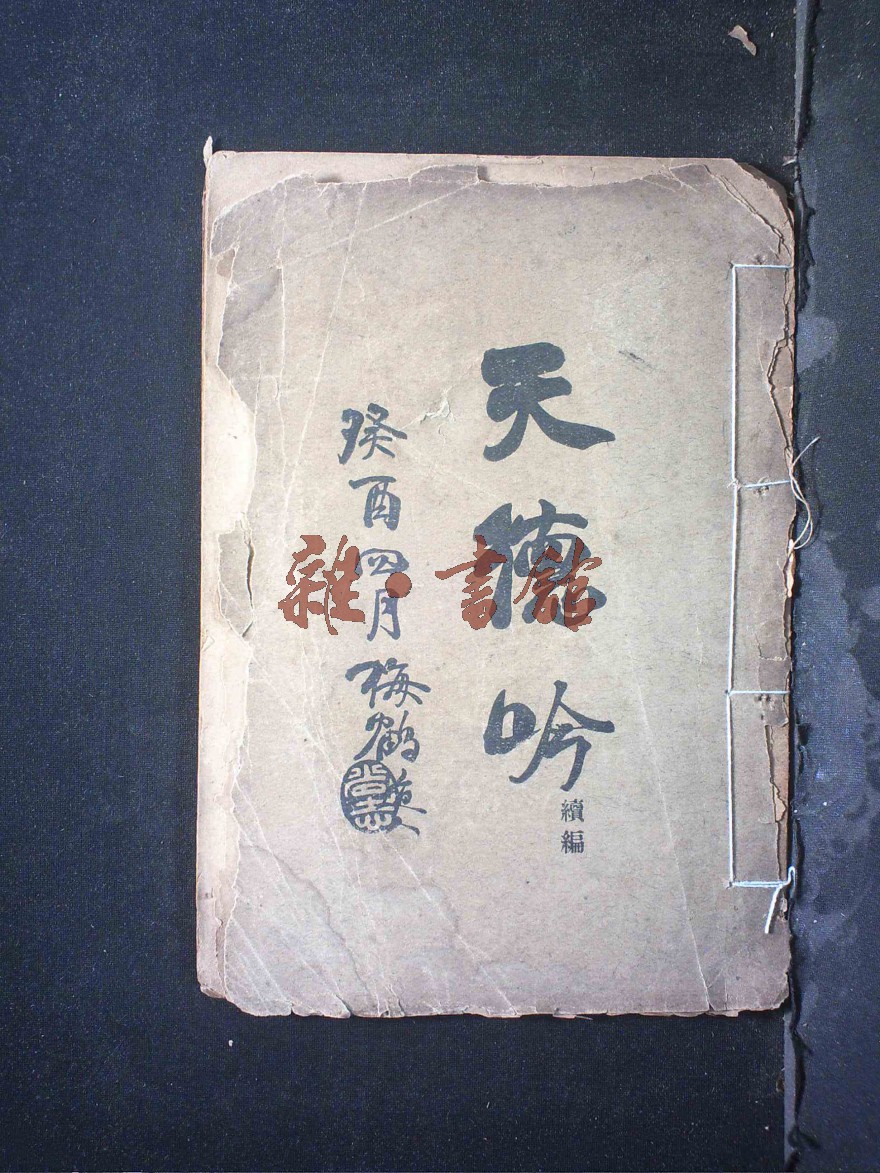 天德吟
續編
癸酉四月梅鶴
雜·書館